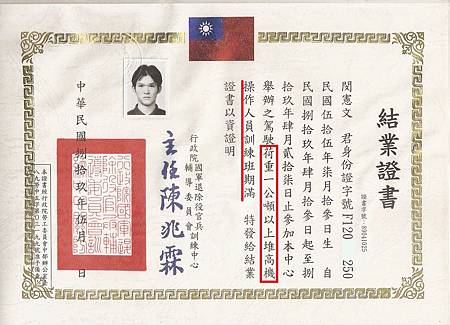 結業證書
證書字號:89041025
閔憲文 君身份證字號F120 250
民國伍拾伍年柒月拾參日生 自
民國捌拾玖年肆月拾參日起至捌
拾玖年肆月貳拾柒日止參加本中心
舉辦之駕駛荷重一公噸以上堆高機
操作人員訓練班期滿 特發給結業
證書以資證明
行政院國軍退除役官兵輔導委員會訓練中心
主任陳兆霖
中華民國捌拾玖年伍月 日
本證書經行政院勞工委員會中部辦公室